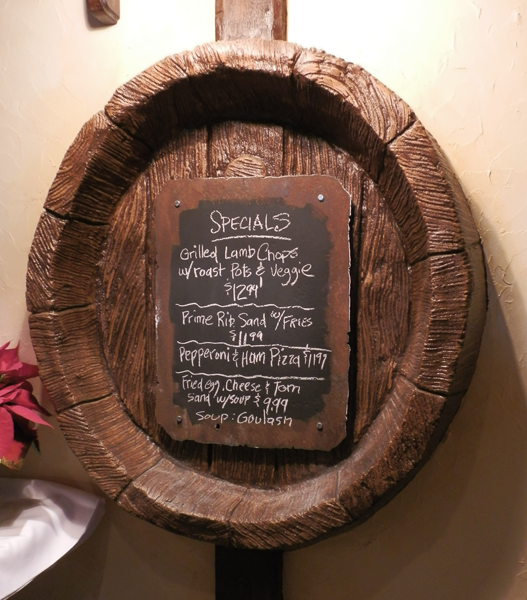 SPECIALS
Grilled Lamb Chops
w/roast Pots & Veggie
$12.99
Prime Rib Sand w/FRIES
$11.99
Pepperoni & Ham Pizza $11.99
Fried egg, Cheese & Tom
Sand w/soup $9.99
Soup: Goulash